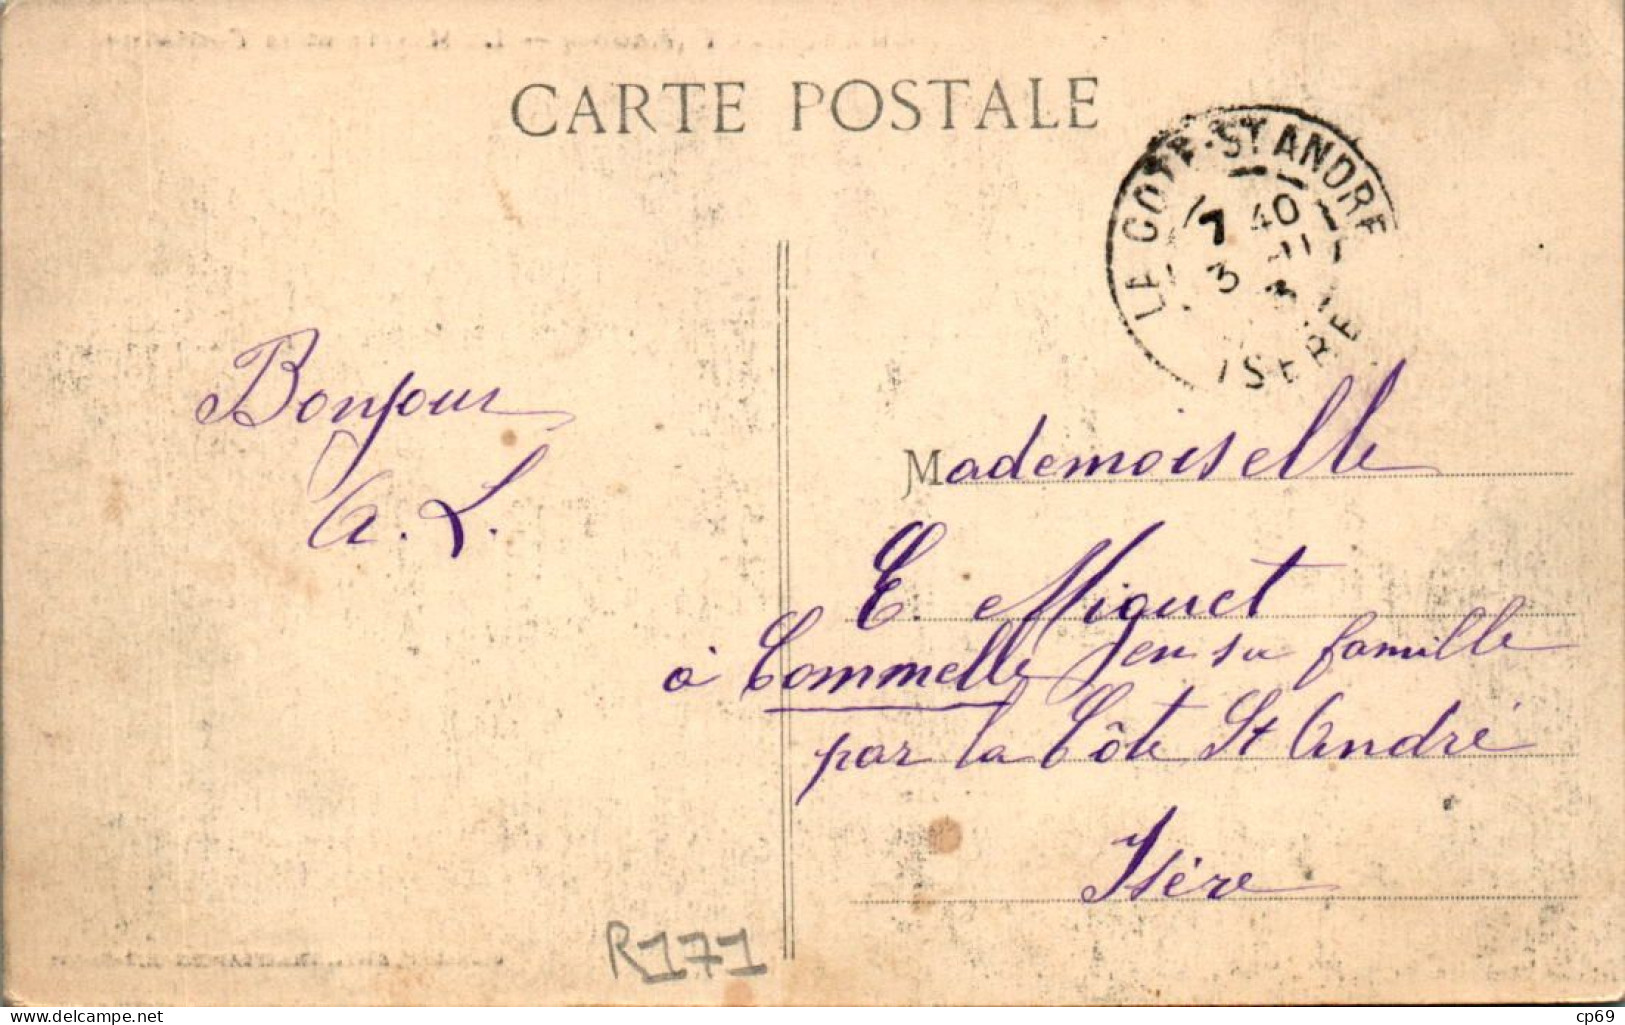 CARTE POSTALE
LA COTE-ST ANDRE
7 40
3 3
ISERE
Bonjour
A. L.
Mademoiselle
E. Miquet
à Commelle en sa famille
par la Côte St André
Isère
R171
delcampe.net
cp69